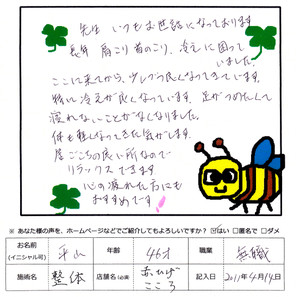 先生 いつもお世話になっております
長年 肩こり 首のこり、冷えに困って
いました。
ここに来てから、少しづつ良くなってきています。
特に冷えが良くなっています。足がつめたくて
寝れないことがなくなりました。
体も軽くなってきた気がします。
居ごこちの良い所なので
リラックスできます。
心の疲れた方にも
おすすめです
※ あなた様の声を、ホームページなどでご紹介してもよろしいですか? はい □匿名で □ダメ
お名前 (イニシャル可) 平山 年齢 46才 職業 無職
施術名 整体 店舗名(必須) 赤ひげ こころ 記入日 2011年4月14日